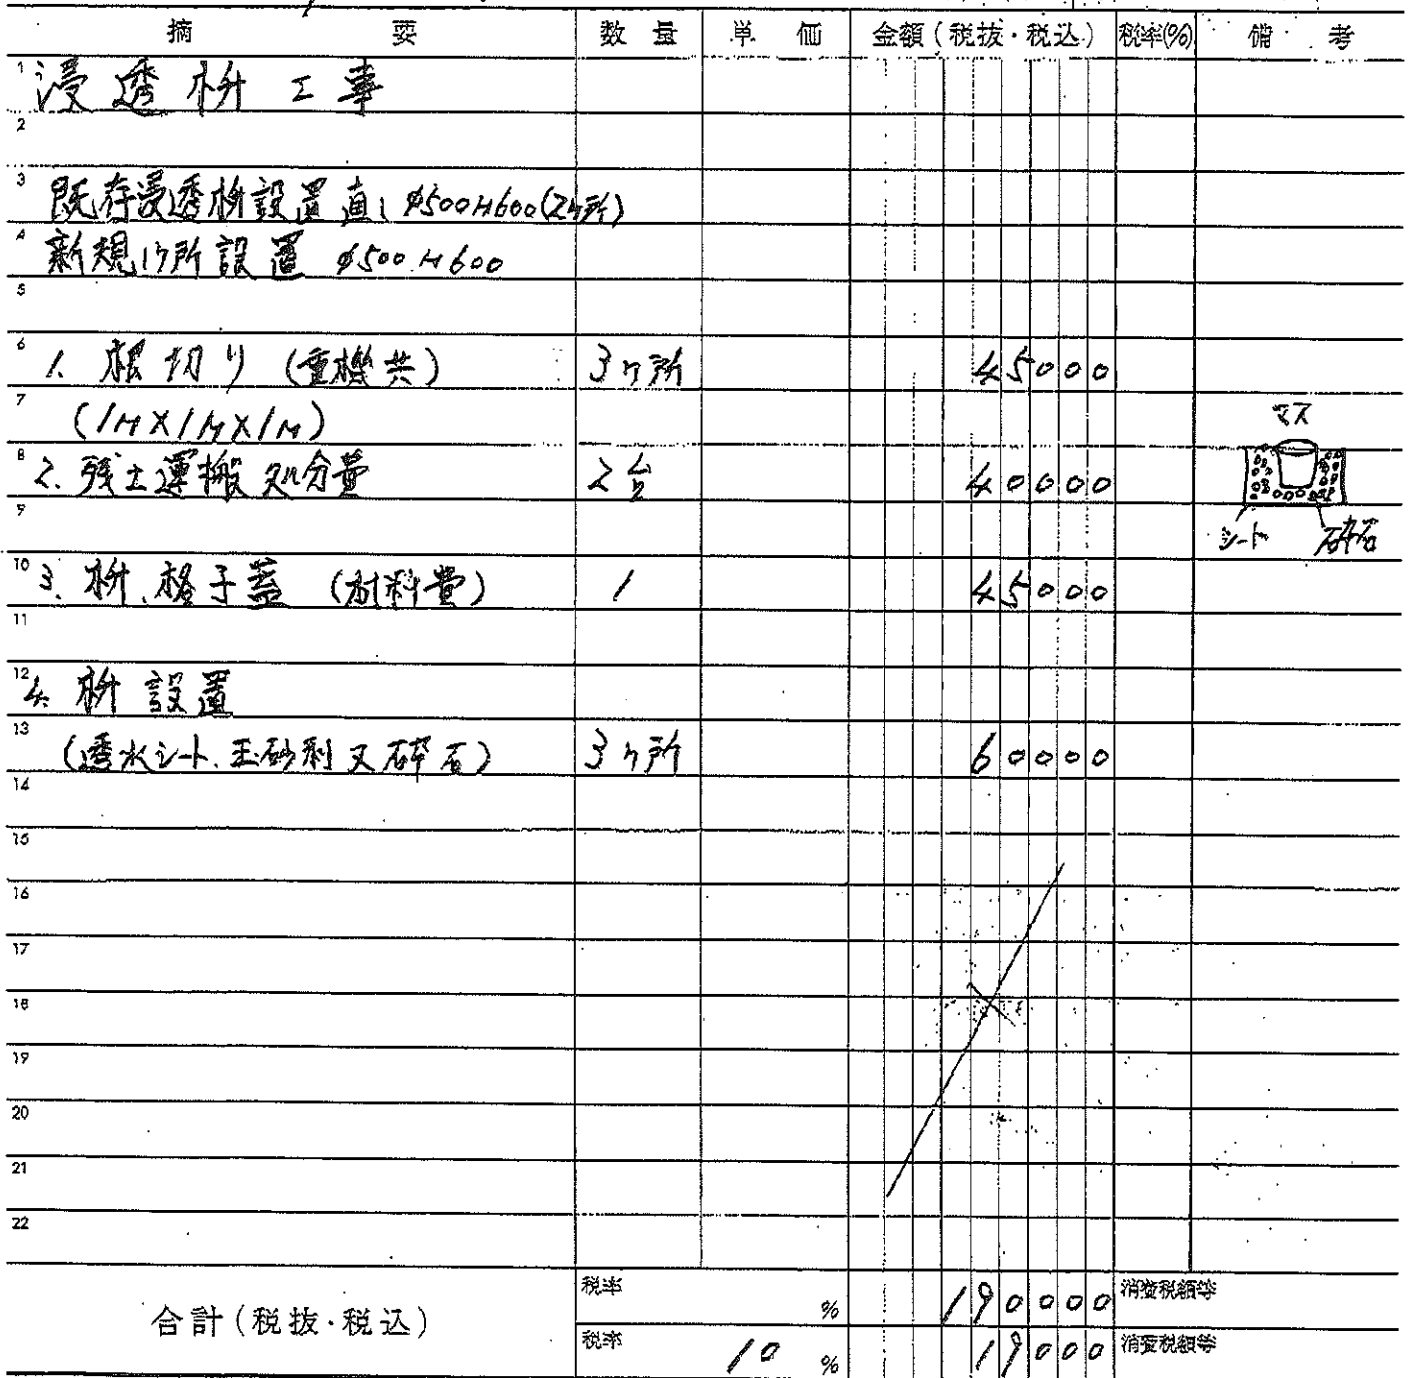 摘要 数量 単価 金額(税抜・税込) 税率(%) 備考
1 浸透枡工事
2
3 既存浸透枡設置直し φ500H600(2ヶ所)
4 新規1ヶ所設置 φ500 H600
5
6 1. 根切り (重機共) 3ヶ所 45000
7 (1M×1M×1M)
マス
8 2. 残土運搬処分費 2台 40000
9
シート 砕石
10 3. 枡、格子蓋 (材料費) 1 45000
11
12 4. 枡設置
13 (透水シート、玉砂利又砕石) 3ヶ所 60000
14
15
16
17
18
19
20
21
22
合計(税抜・税込) 税率 % 190000 消費税額等
税率 10 % 19000 消費税額等